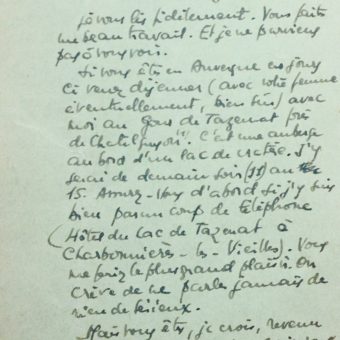 je vous lis fidèlement. Vous faites
un beau travail. Et je ne parviens
pas à vous voir.
Si vous êtes en Auvergne ces jours
ci venez déjeuner (avec votre femme
éventuellement, bien sûr) avec
moi au Gour de Tazenat près
de Chatelguyon. C'est une auberge
au bord d'un lac de cratère. J'y
serai de demain soir (11) au
15. Assurez-vous d'abord si j'y suis
bien par un coup de téléphone
(Hôtel du Lac de Tazenat à
Charbonnières-les-Vieilles). Vous
me feriez le plus grand plaisir. On
crève de ne parler jamais de
rien de sérieux.
Mais vous êtes, je crois, revenu